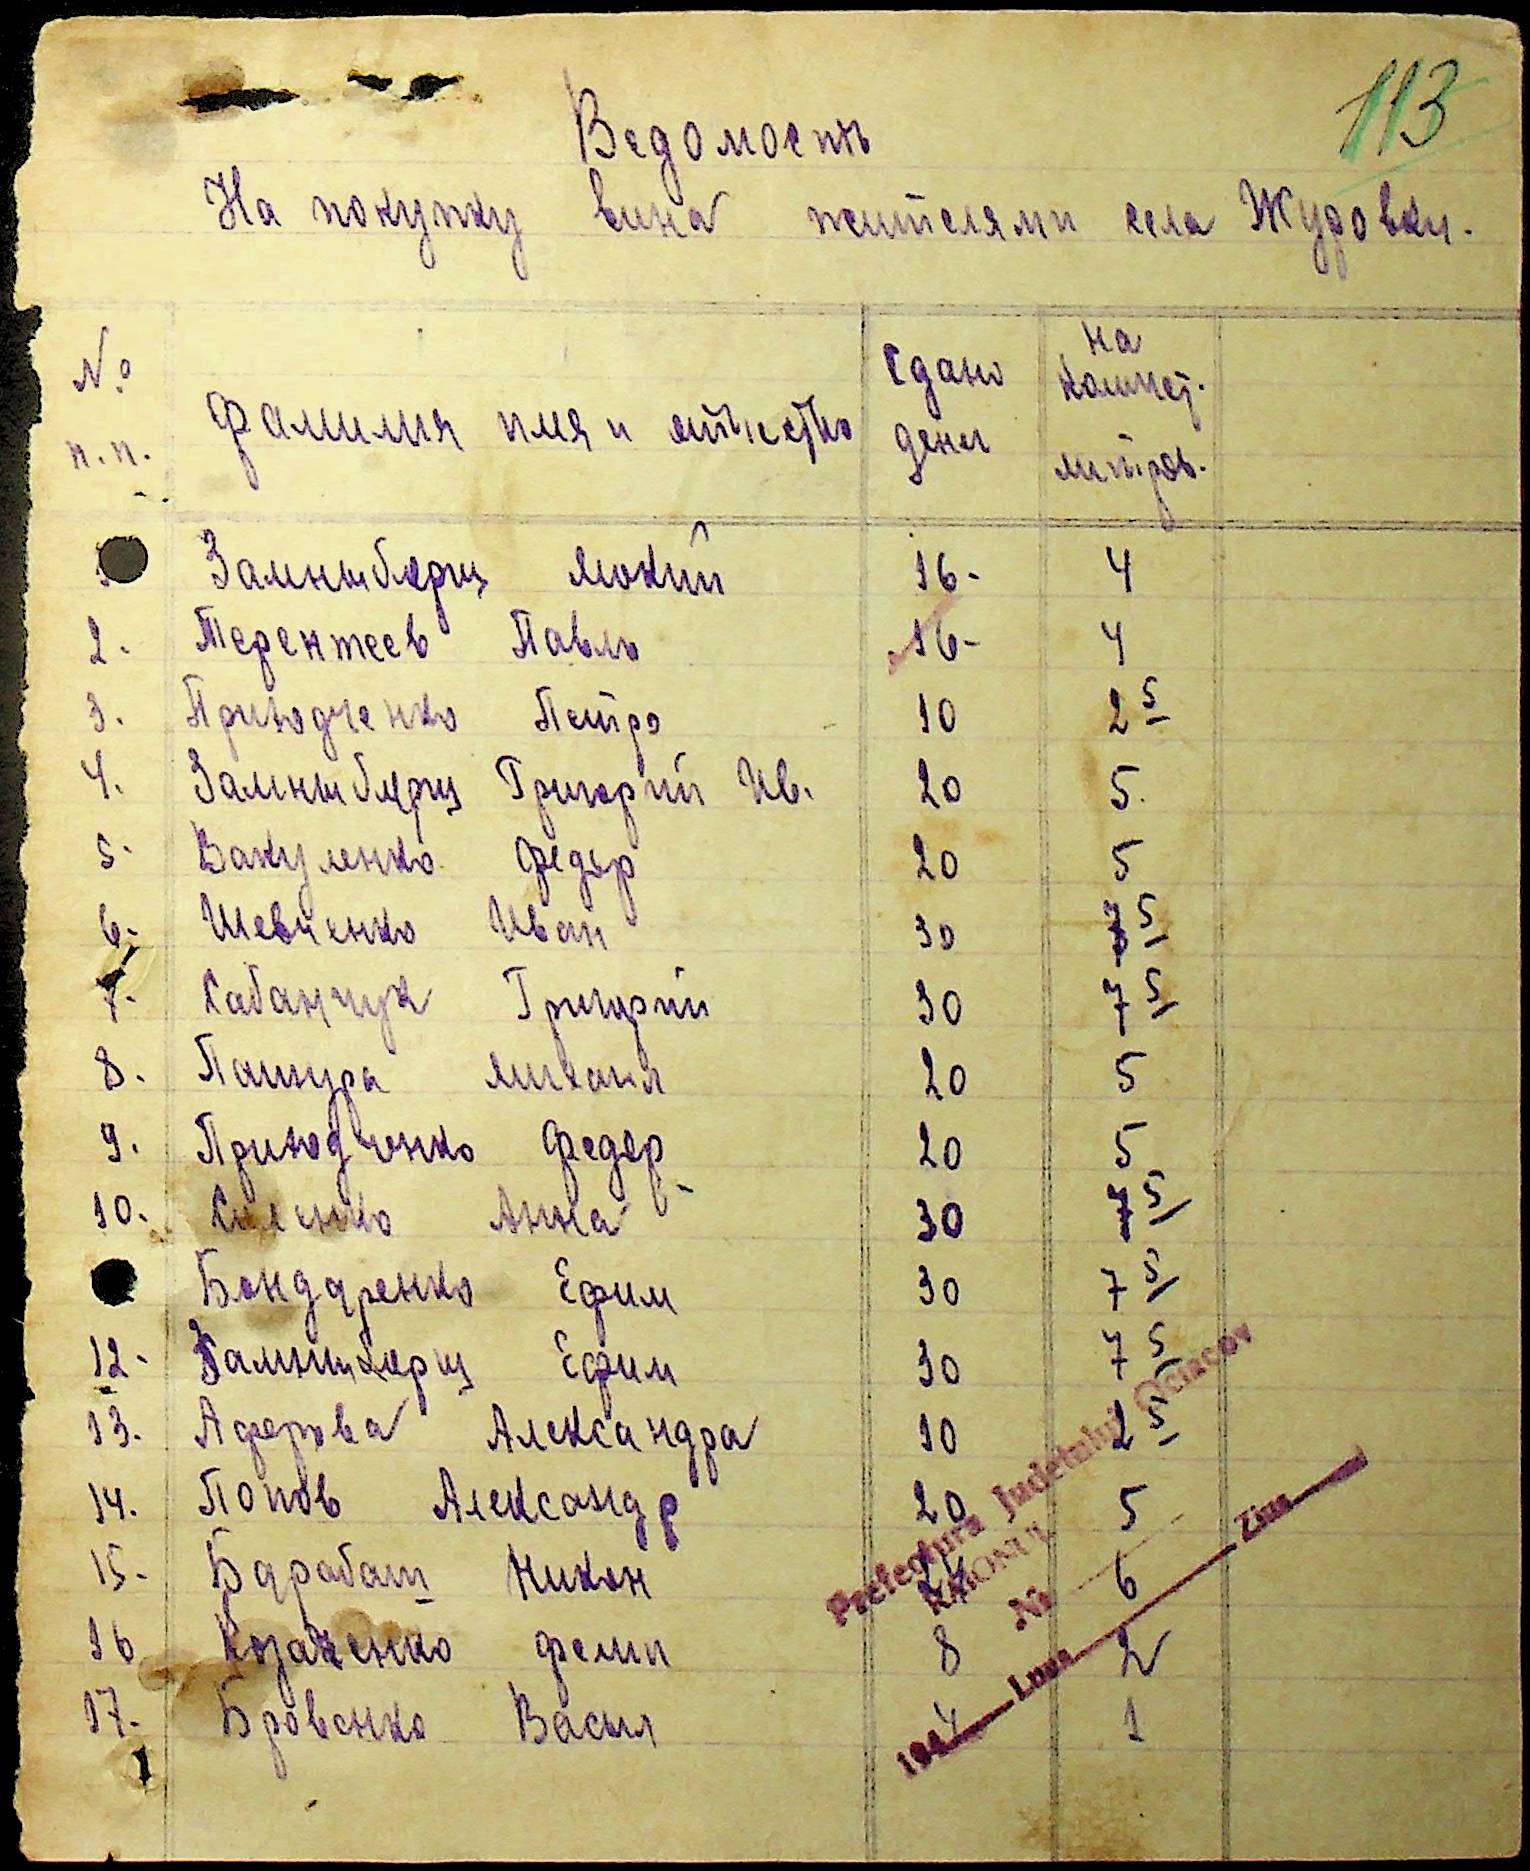 113
Ведомость
На покупку вина жителями села Жудовки.
№ п.п. Фамилия имя и отчество Сдано денег на количес. литров.
1 Замниборщ Мокий 16- 4
2. Терентеев Павло 16- 4
3. Приходченко Петро 10 2 5
4. Замниборщ Григорий Ив. 20 5.
5. Вакуленко Федор 20 5
6. Шевченко Иван 30 7 5
7. Кабанчук Григорий 30 7 5
8. Пашура Михаил 20 5
9. Приходченко Федор 20 5
10. Анна 30 7 5
Бондаренко Ефим 30 7 5
12. Замниборщ Ефим 30 7 5
13. Александра 10 2 5
14. Попов Александр 20 5
15. Барабаш Никон 24 6
16 Козаченко 8 2
17. Бровенко Васил 4 1
Prefectura Judetului Ociacov
RAIONUL
Nr
194 Luna Ziua